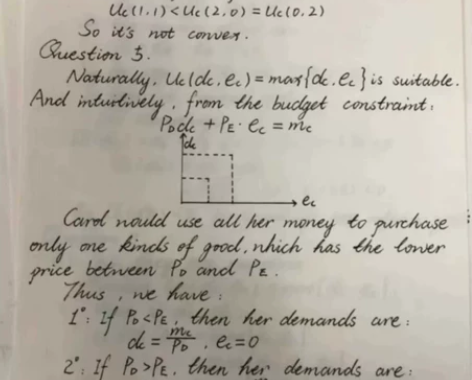 Uc(1,1) < Uc(2,0) = Uc(0,2)
So it's not convex.
Question 3.
Naturally, Uc(dc, ec) = max{dc, ec} is suitable.
And intuitively, from the budget constraint:
PDdc + PE · ec = mc
dc
ec
Carol would use all her money to purchase
only one kinds of good, which has the lower
price between PD and PE.
Thus, we have:
1°: If PD<PE, then her demands are:
dc = mc/PD, ec=0
2°: If PD>PE, then her demands are: